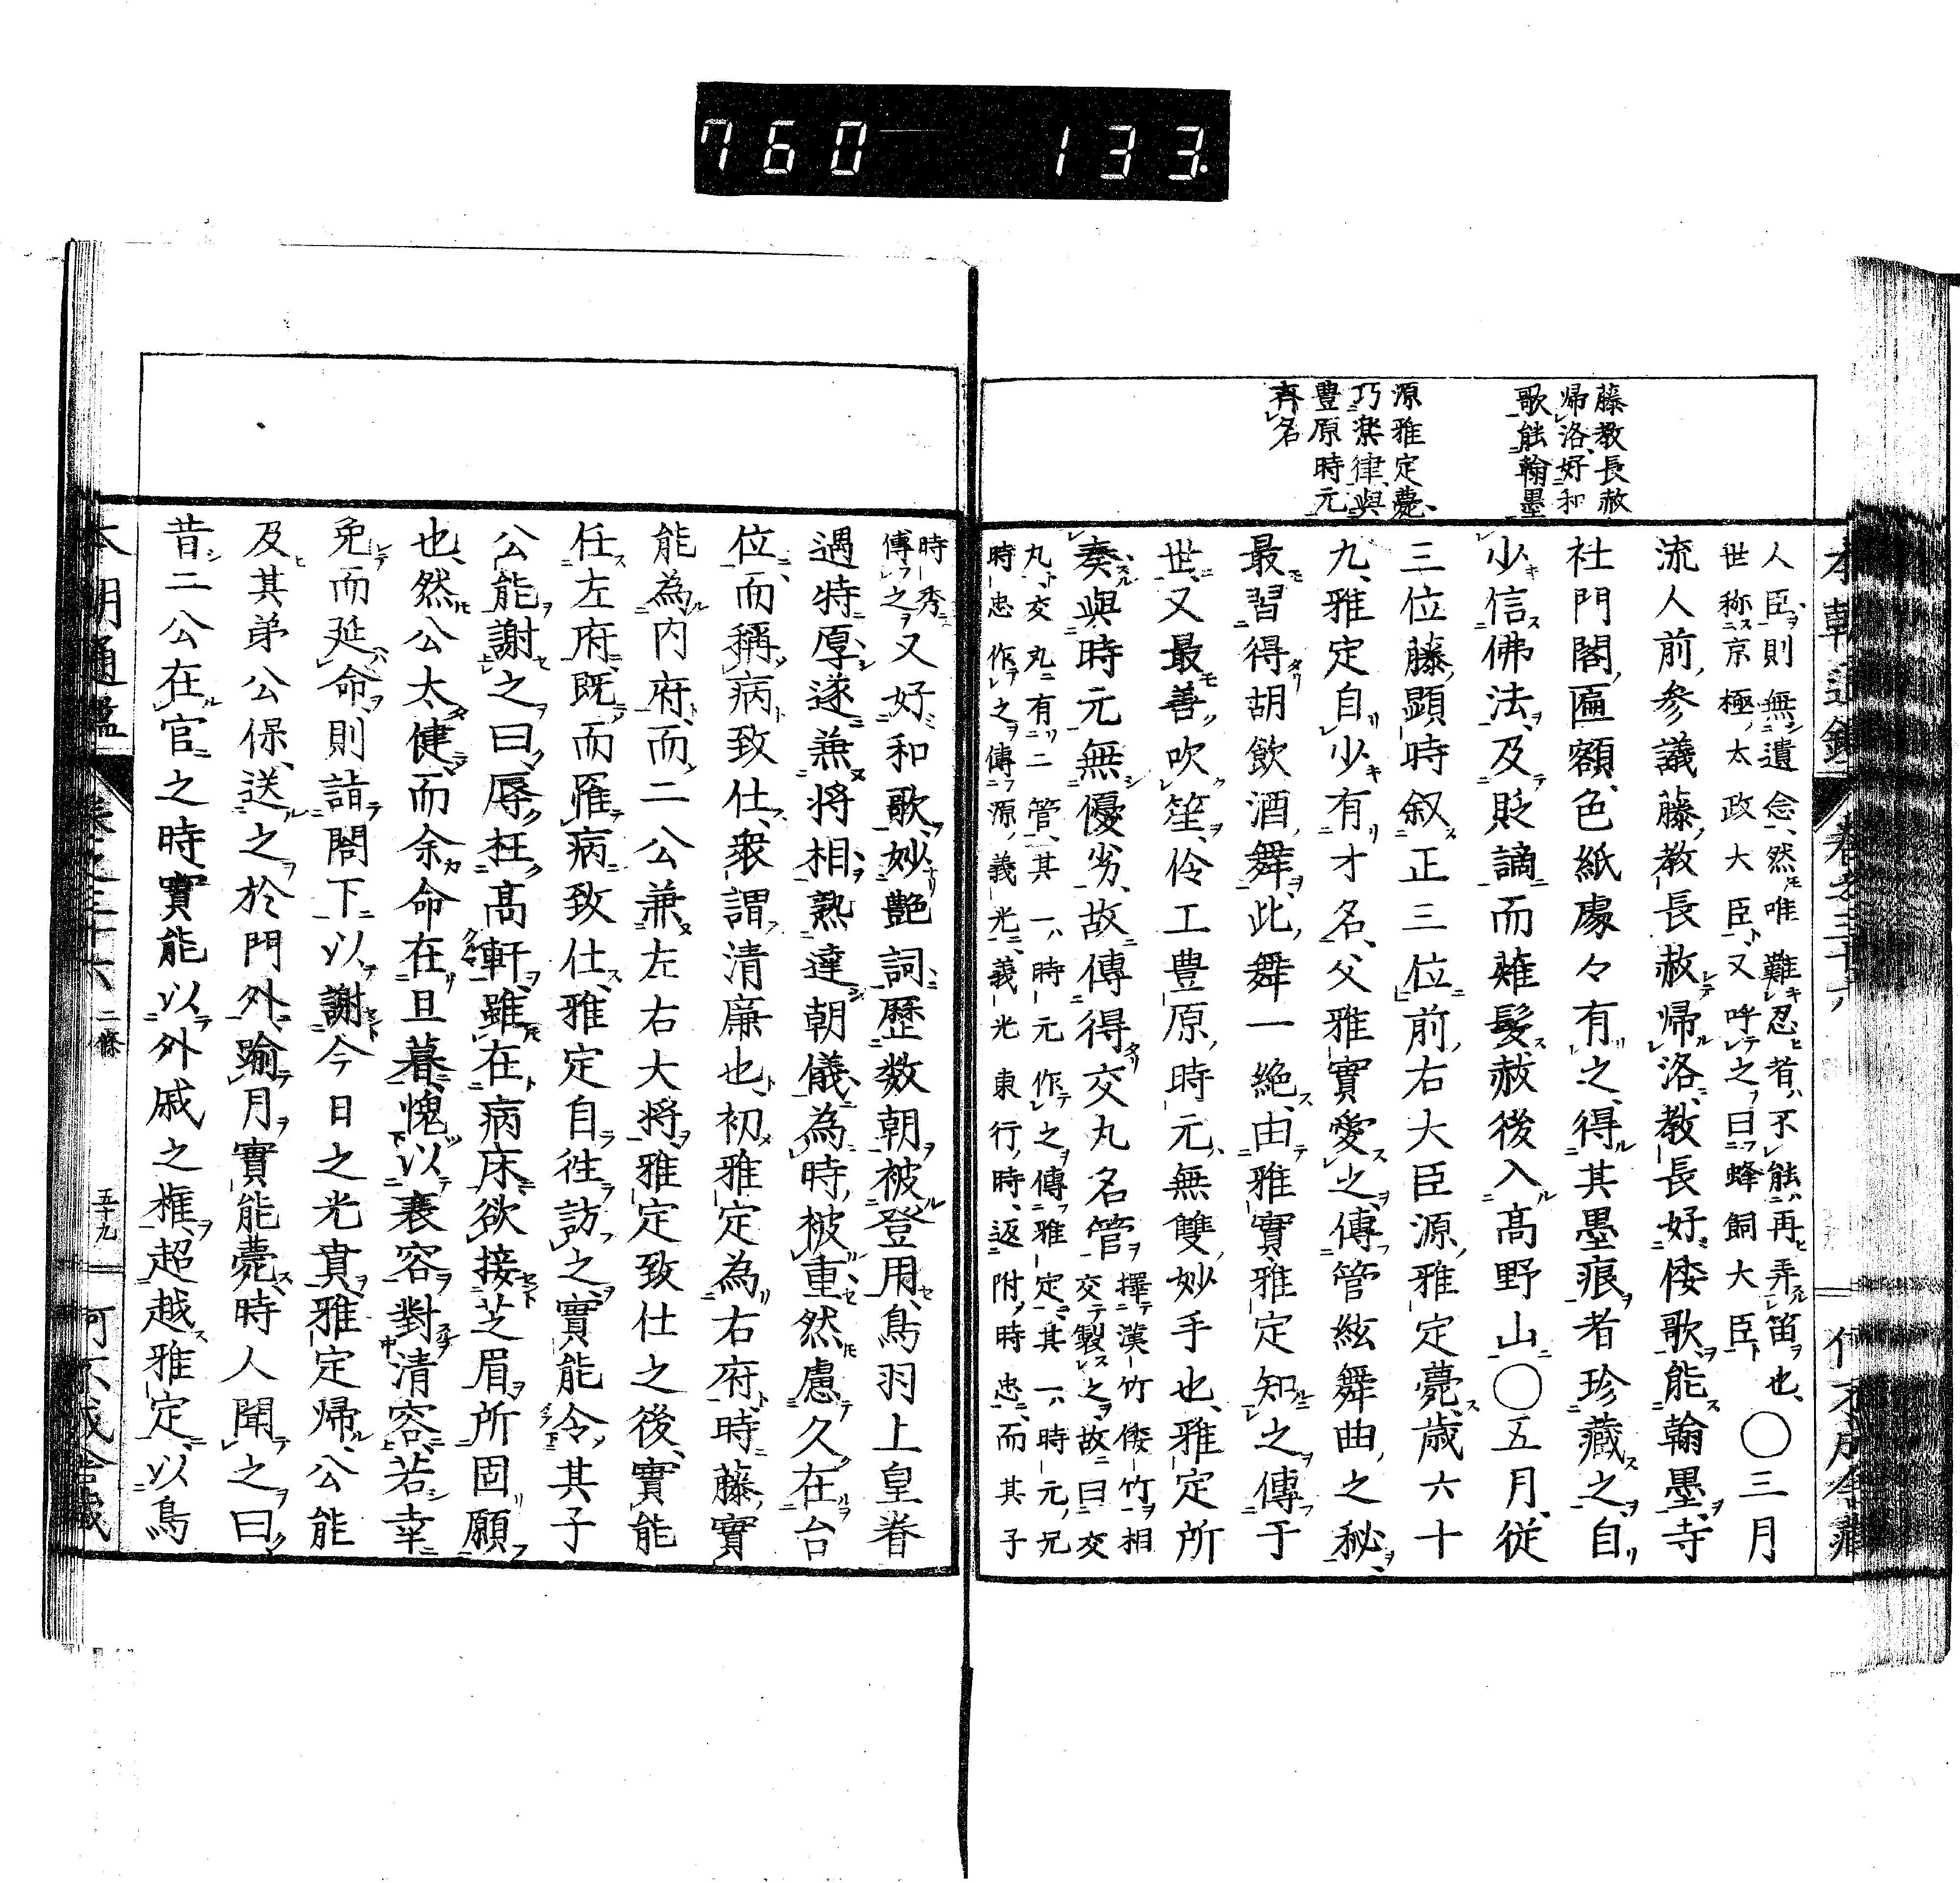 760 133
藤教長赦
帰洛好和
歌能翰墨
源雅定薨
巧楽律與
豊原時元
斉名
人臣則無遺念然唯難忍者不能再弄笛也
世称京極太政大臣又呼之曰蜂飼大臣
〇三月
流人前参議藤教長赦帰洛教長好倭歌能翰墨寺
社門閣匾額色紙處々有之得其墨痕者珍藏之自
少信佛法及貶謫而薙髪赦後入高野山〇五月従
三位藤顕時叙正三位前右大臣源雅定薨歳六十
九雅定自少有才名父雅實愛之傳管絃舞曲之秘
最習得胡飲酒舞此舞一絶由雅實雅定知之傳于
世又最善吹笙伶工豊原時元無雙妙手也雅定所
奏與時元無優劣故傳得交丸名管
擇漢竹倭竹相
交製之故曰交
丸交丸有二管其一時元作之傳雅定其一時元兄
時忠作之傳源義光義光東行時返附時忠而其子
時秀
傳之
又好和歌妙艶詞歴数朝被登用鳥羽上皇眷
遇特厚遂兼將相熟達朝儀為時被重然慮久在台
位而稱病致仕衆謂清廉也初雅定為右府時藤實
能為内府而二公兼左右大將雅定致仕之後實能
任左府既而罹病致仕雅定自往訪之實能令其子
公能謝之曰辱枉高軒雖在病床欲接芝眉所固願
也然公太健而余命在旦暮愧以衰容對清容若幸
免而延命則詣閤下以謝今日之光賁雅定帰公能
及其弟公保送之於門外踰月實能薨時人聞之曰
昔二公在官之時實能以外戚之権超越雅定以鳥
本朝通鑑 巻之三十六 二條 五十九